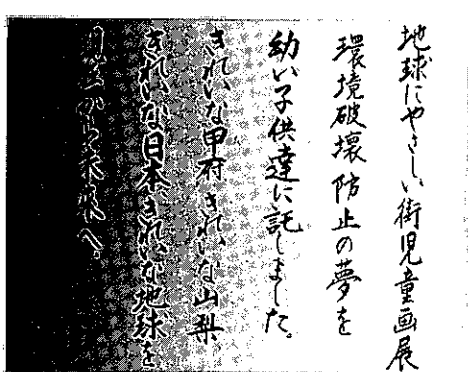 地球にやさしい街児童画展
環境破壊防止の夢を
幼い子供達に託しました。
きれいな甲府きれいな山梨
きれいな日本きれいな地球を
から未来へ。